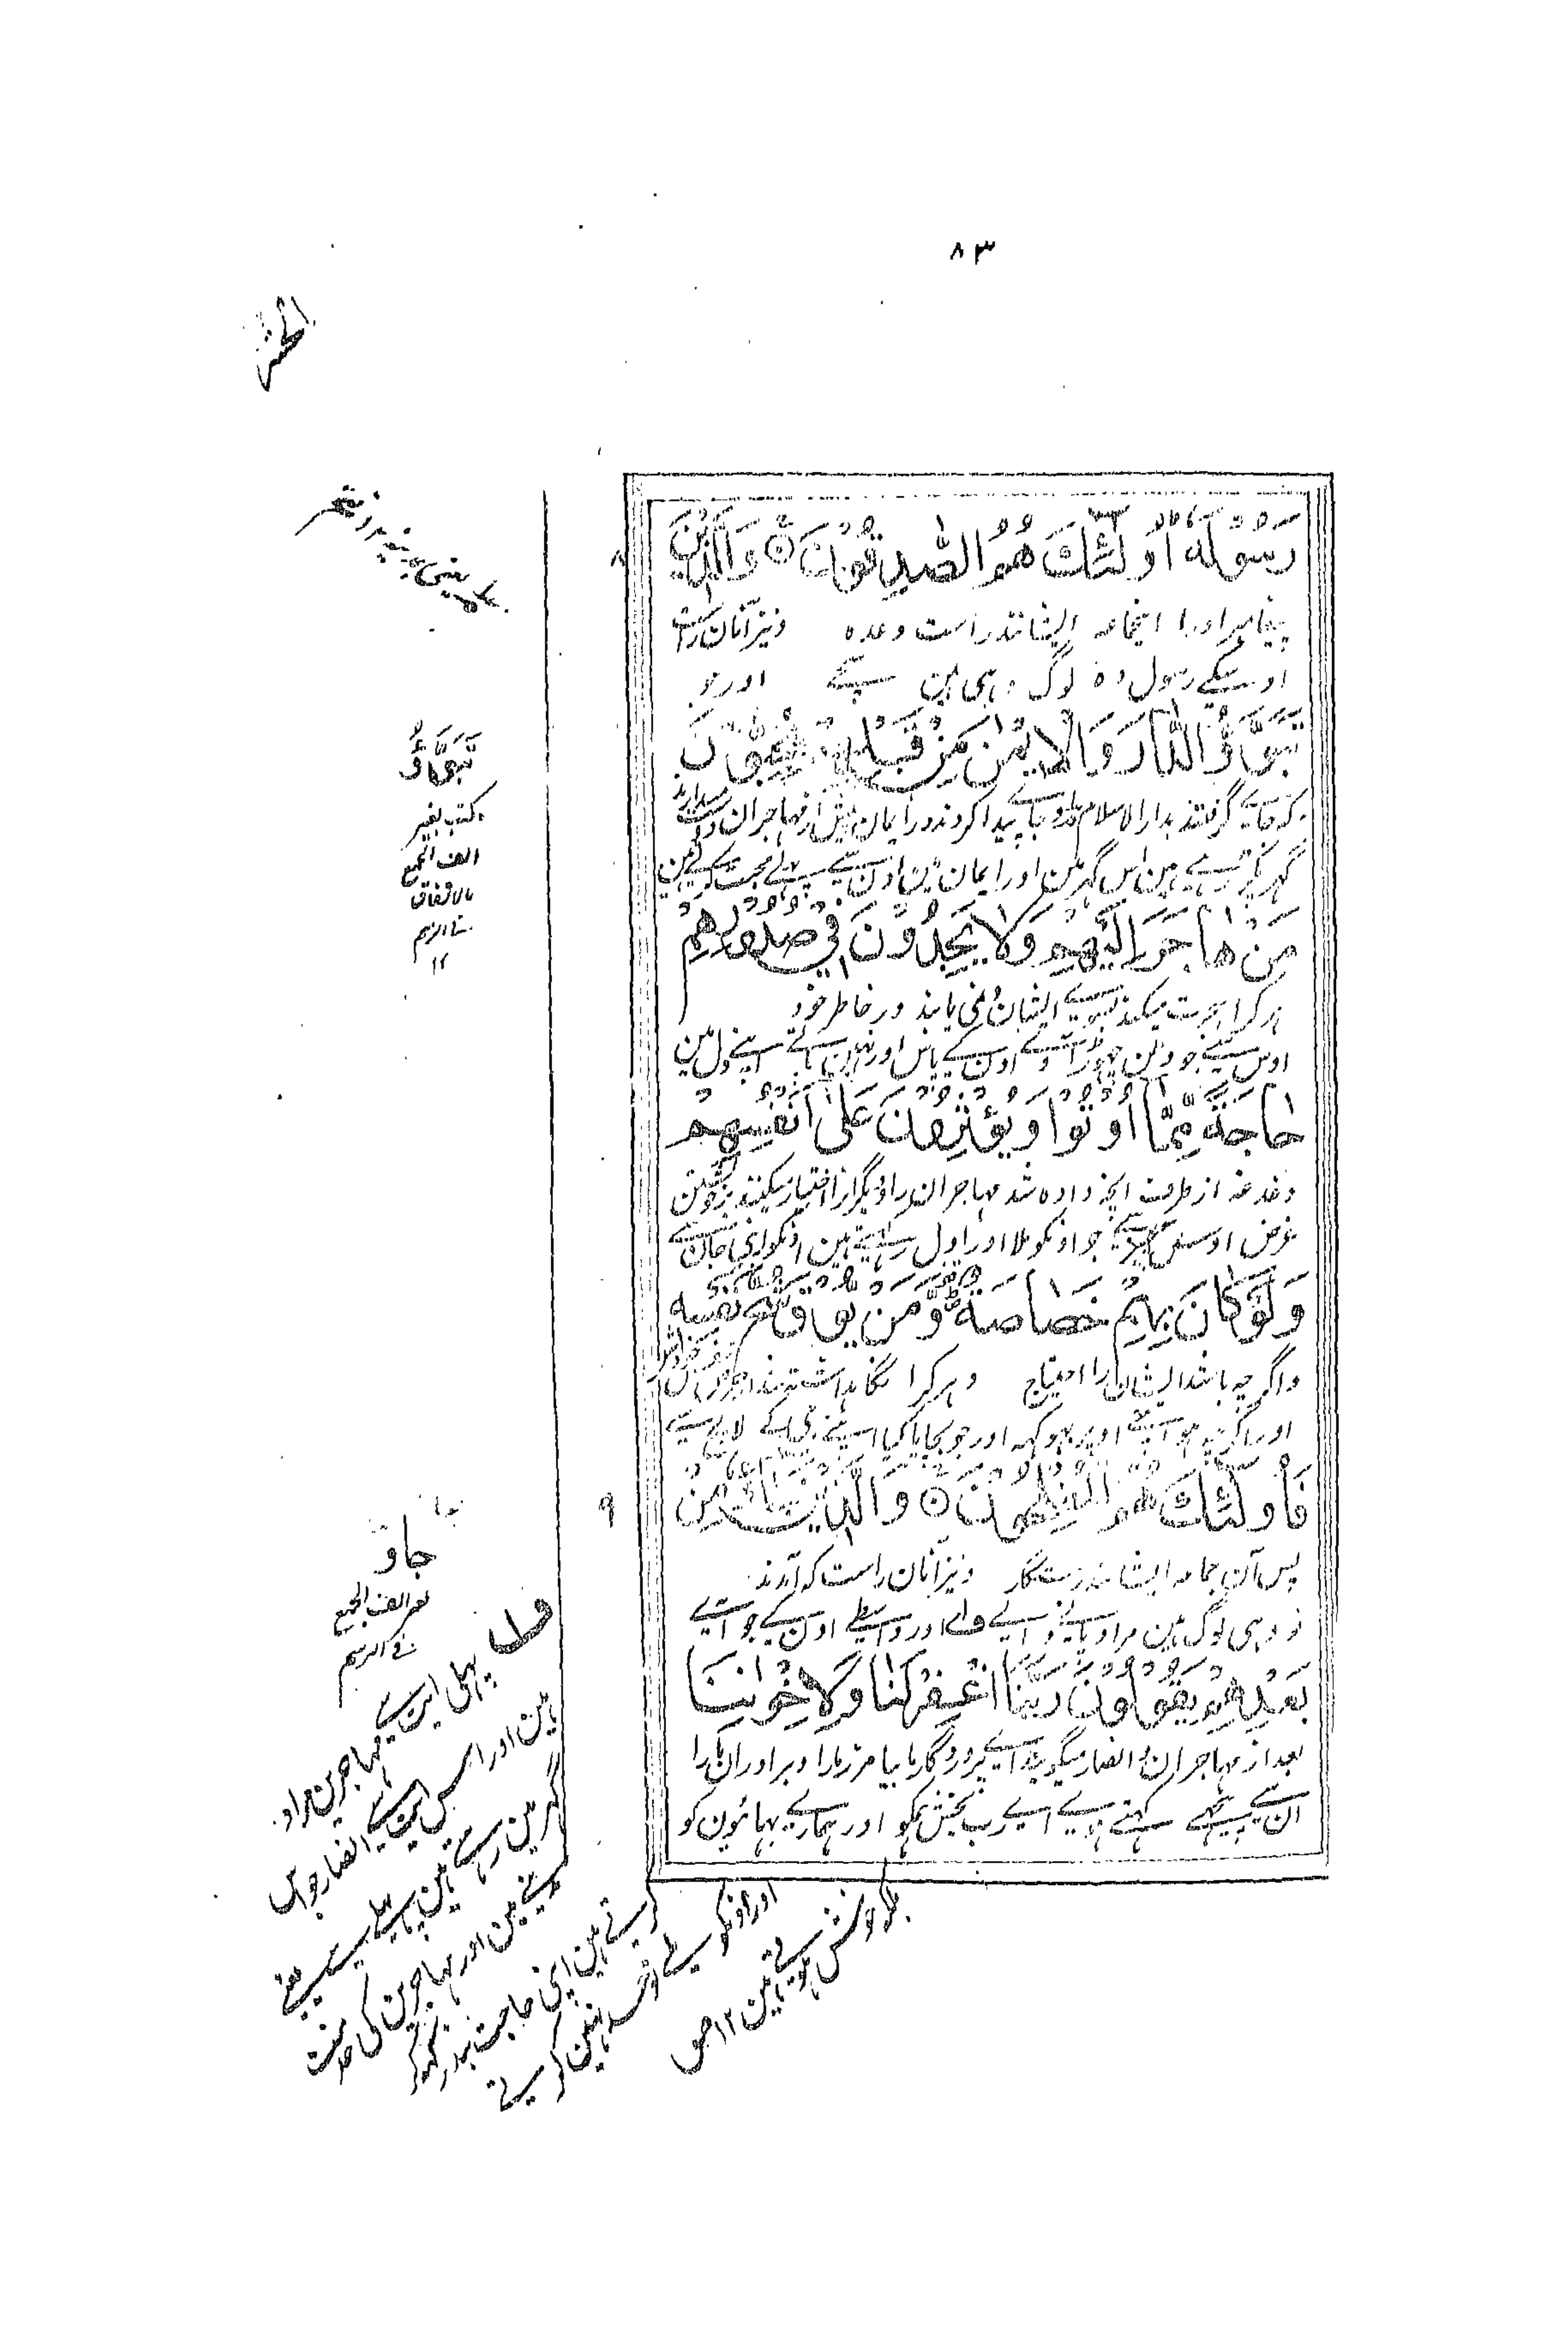 ٨٣
الحشر
رَسُوْلَهٗ اُولٰٓئِكَ هُمُ الصّٰدِقُوْنَ ۝ وَالَّذِيْنَ
پیغامبر اورا اینجماعہ ایشانند راست وعدہ ونیز آنان راست
اوسکے رسول کو وہ لوگ وہی ہین سچے اور جو
تَبَوَّؤُ الدَّارَ وَالْاِيْمٰنَ مِنْ قَبْلِهِمْ يُحِبُّوْنَ
کہ جاے گرفتند بدار الاسلام وجاے پیدا کردند در ایمان پیش از مہاجران دوست میدارند
گہر پکڑ رہے ہین اس گہر مین اور ایمان مین اون سے پہلے محبت کرتے ہین
مَنْ هَاجَرَ اِلَيْهِمْ وَلَا يَجِدُوْنَ فِيْ صُدُوْرِهِمْ
ہر کرا ہجرت میکند بسوے ایشان ونمی یابند در خاطر خود
اوس سے جو وطن چہوڑ آوے اون کے پاس اور نہین پاتے اپنے دل مین
حَاجَةً مِّمَّآ اُوْتُوْا وَيُؤْثِرُوْنَ عَلٰٓى اَنْفُسِهِمْ
دغدغہ از طرف آنچہ دادہ شد مہاجران را ودیگرانرا اختیار میکنند بر خویشتن
غرض اوس چیز سے جو اونکو ملا اور اول رکہتے ہین اونکو اپنی جان سے
وَلَوْ كَانَ بِهِمْ خَصَاصَةٌ ؕ وَّمَنْ يُّوْقَ شُحَّ نَفْسِهٖ
واگرچہ باشد ایشان را احتیاج وہر کرا نگاہداشتہ شد از حرص نفس خودش
اور اگرچہ ہو اپنے اوپر بہوکہہ اور جو بچایا گیا اپنے جی کے لالچ سے
فَاُولٰٓئِكَ هُمُ الْمُفْلِحُوْنَ ۝ وَالَّذِيْنَ جَآءُوْ مِنْ
٩
پس آن جماعہ ایشانند رستگار ونیز آنان راست کہ آمدند
تو وہی لوگ ہین مراد پانے والے ف۱ اور واسطے اون کے جو آئے
بَعْدِهِمْ يَقُوْلُوْنَ رَبَّنَا اغْفِرْ لَنَا وَلِاِخْوَانِنَا
بعد از مہاجران وانصار میگویند اے پروردگار ما بیامرز مارا وبرادران مارا
ان سے پیچہے کہتے ہوئے اے رب بخش ہمکو اور ہمارے بہائیون کو
تَبَوَّؤُ
کتب بغیر
الف الجمع
بالاتفاق
فی الرسم
١٢
جاؤ
بغیر الف الجمع
فی الرسم
ف۱ پہلی آیت سے مہاجرین مراد
ہین اور اس آیت سے انصار جو اس
گہر مین رہتے ہین پہلے سے یعنے
مدینے مین اور مہاجرین کی خدمت
کرتے ہین اپنی حاجت بند رکہکر
اور اونکو ملے تو حسد نہین کرتے
بلکہ خوش ہوتے ہین ١٢ ص